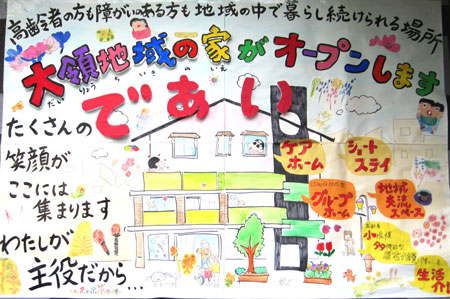 高齢者の方も障がいのある方も地域の中で暮らし続けられる場所
大領地域の家がオープンします
だいりょうちいきのいえ
であい
たくさんの
笑顔が
ここには
集まります
わたしが
主役だから…
ケア
ホーム
ショート
ステイ
グループ
ホーム
地域
交流
スペース
小規模
多機能
生活
介